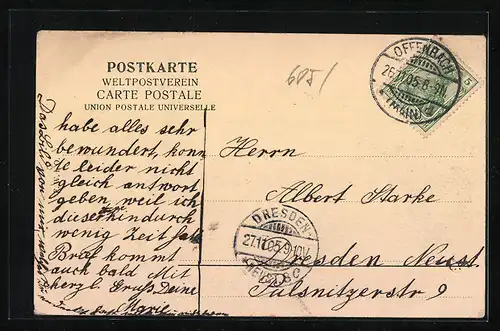 POSTKARTE
WELTPOSTVEREIN
CARTE POSTALE
UNION POSTALE UNIVERSELLE
605/
OFFENBACH
26.11.05.8-9N.
(MAIN)
5
habe alles sehr
bewundert, konn
te leider nicht
gleich antwort
geben, weil ich
dieser hindurch
wenig Zeit
Brief kommt
auch bald Mit
herzl. Gruß Deine
Marie
Herrn
Albert Starke
DRESDEN
27.11.05.9-10V.
Dresden Neust.
Pulsnitzerstr 9